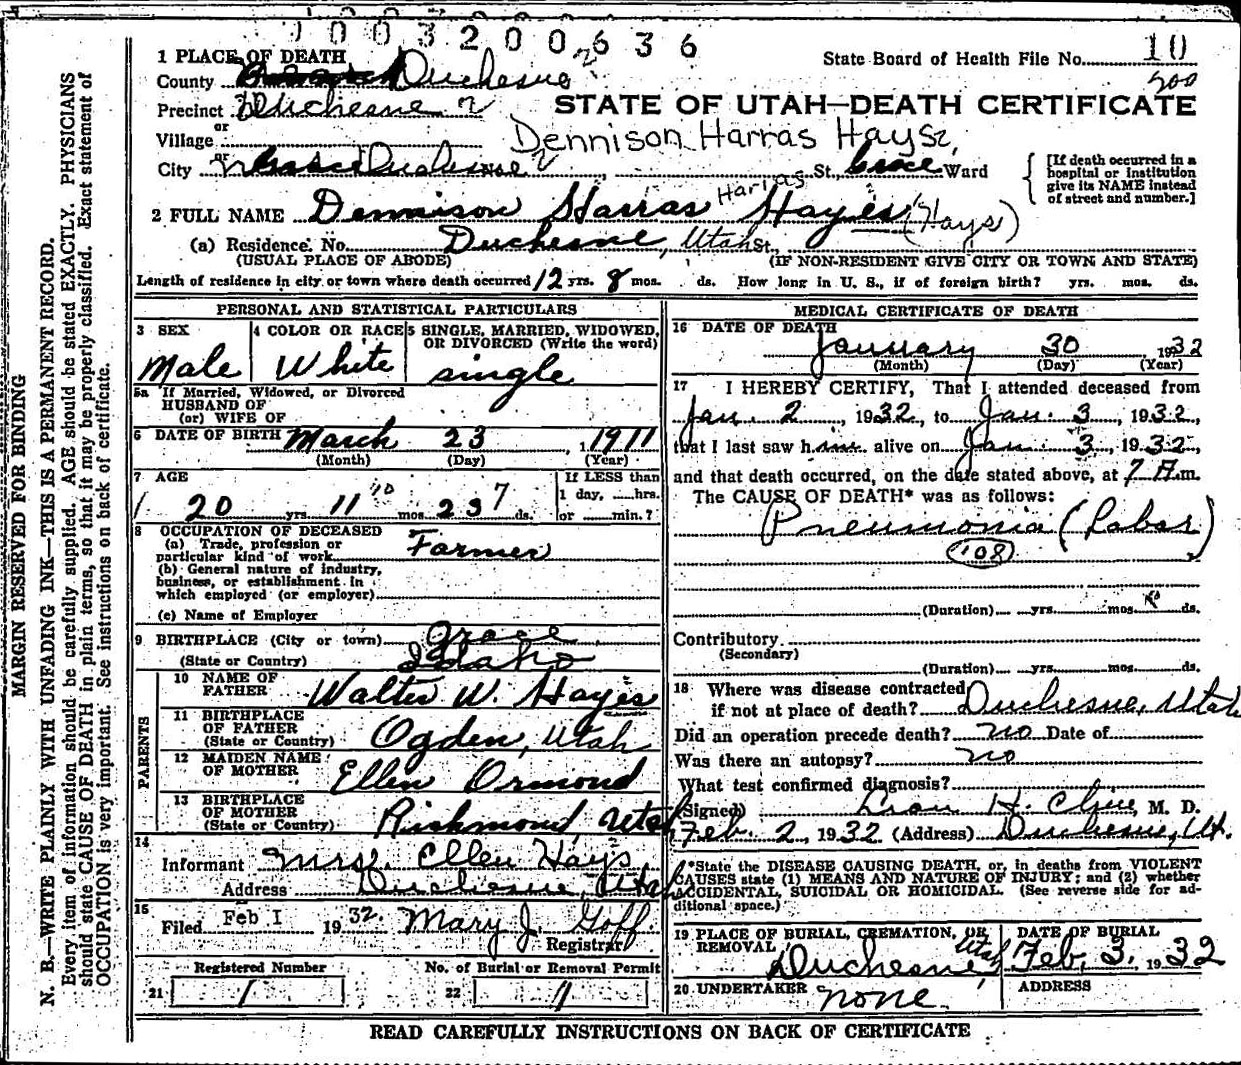 1003200636
1 PLACE OF DEATH
State Board of Health File No. 10
200
County Duchesne 2
Precinct Duchesne 2
STATE OF UTAH—DEATH CERTIFICATE
Village or
Dennison Harras Hays
City or Duchesne St., Ward
[If death occurred in a hospital or institution give its NAME instead of street and number.]
Harras
2 FULL NAME Dennison Harras Hayes (Hays)
(a) Residence. No. Duchesne, Utah St.,
(USUAL PLACE OF ABODE) (IF NON-RESIDENT GIVE CITY OR TOWN AND STATE)
Length of residence in city or town where death occurred 12 yrs. 8 mos. ds. How long in U. S., if of foreign birth? yrs. mos. ds.
PERSONAL AND STATISTICAL PARTICULARS
3 SEX Male
4 COLOR OR RACE White
5 SINGLE, MARRIED, WIDOWED, OR DIVORCED (Write the word) single
5a If Married, Widowed, or Divorced
HUSBAND OF
(or) WIFE OF
6 DATE OF BIRTH March 23 1, 1911
(Month) (Day) (Year)
7 AGE
20 yrs. 11 10 mos. 23 7 ds.
If LESS than 1 day, ....hrs. or ....min.?
8 OCCUPATION OF DECEASED
(a) Trade, profession or particular kind of work Farmer
(b) General nature of industry, business, or establishment in which employed (or employer)
(c) Name of Employer
9 BIRTHPLACE (City or town) Grace
(State or Country) Idaho
PARENTS
10 NAME OF FATHER Walter W. Hayes
11 BIRTHPLACE OF FATHER (State or Country) Ogden, Utah
12 MAIDEN NAME OF MOTHER Ellen Ormond
13 BIRTHPLACE OF MOTHER (State or Country) Richmond, Utah
14
Informant Mrs. Ellen Hays
Address Duchesne, Utah
15
Filed Feb 1 1932. Mary J Goff.
Registrar
Registered Number
21 1
No. of Burial or Removal Permit
22 11
MEDICAL CERTIFICATE OF DEATH
16 DATE OF DEATH
January 30 1932
(Month) (Day) (Year)
17 I HEREBY CERTIFY, That I attended deceased from
Jan. 2, 1932, to Jan. 3, 1932,
that I last saw him alive on Jan. 3, 1932,
and that death occurred, on the date stated above, at 7 A.m.
The CAUSE OF DEATH* was as follows:
Pneumonia (Lobar)
108
(Duration) yrs. mos. ds.
Contributory
(Secondary)
(Duration) yrs. mos. ds.
18 Where was disease contracted
if not at place of death? Duchesne, Utah
Did an operation precede death? no Date of
Was there an autopsy? no
What test confirmed diagnosis?
(Signed) H. M. D.
Feb. 2, 1932 (Address) Duchesne, Ut.
*State the DISEASE CAUSING DEATH, or, in deaths from VIOLENT
CAUSES state (1) MEANS AND NATURE OF INJURY; and (2) whether
ACCIDENTAL, SUICIDAL OR HOMICIDAL. (See reverse side for additional space.)
19 PLACE OF BURIAL, CREMATION, OR REMOVAL Duchesne Utah
DATE OF BURIAL Feb. 3. 1932
20 UNDERTAKER none.
ADDRESS
READ CAREFULLY INSTRUCTIONS ON BACK OF CERTIFICATE
MARGIN RESERVED FOR BINDING
N. B.—WRITE PLAINLY WITH UNFADING INK—THIS IS A PERMANENT RECORD.
Every item of information should be carefully supplied. AGE should be stated EXACTLY. PHYSICIANS
should state CAUSE OF DEATH in plain terms, so that it may be properly classified. Exact statement of
OCCUPATION is very important. See instructions on back of certificate.